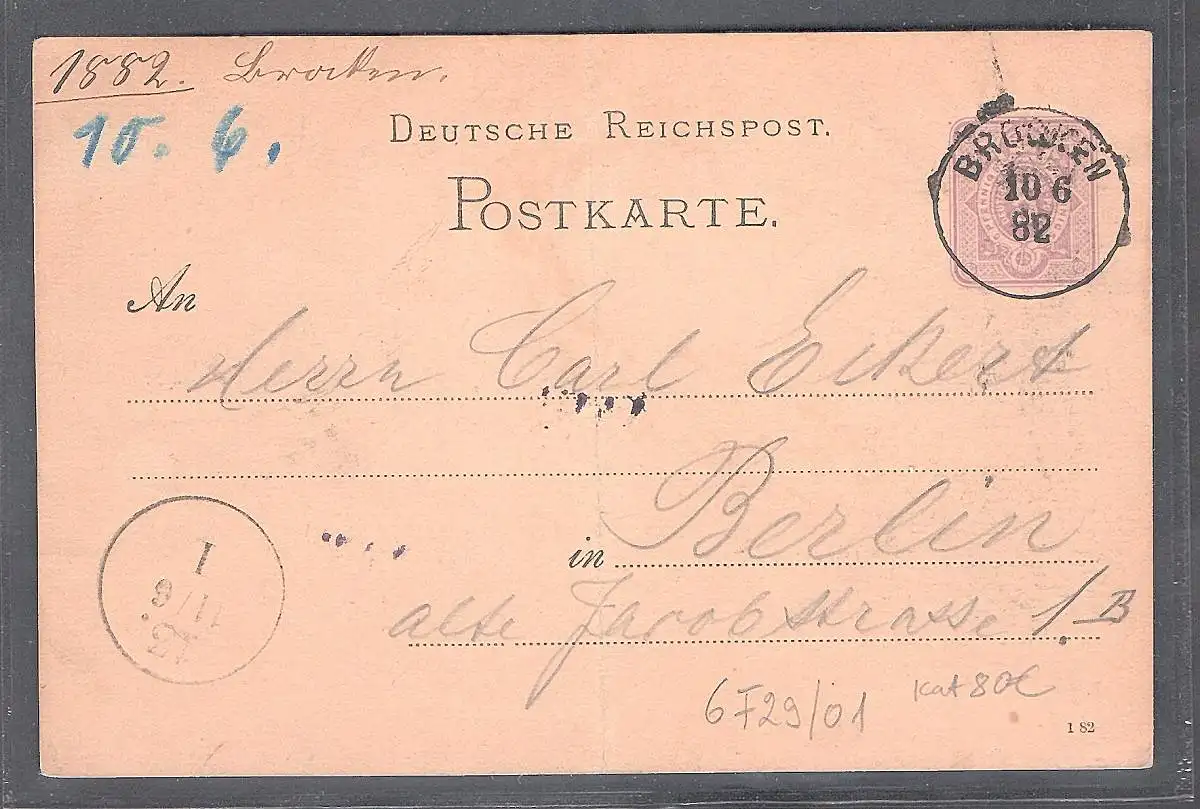 1882. Brocken.
10. 6.
DEUTSCHE REICHSPOST.
POSTKARTE.
BROCKEN
10 6
82
An
Herrn Carl Eckert
in Berlin
alte Jacobstrasse 1. B
I
11/6
12.
6F29/01
Kat 80€
1 82